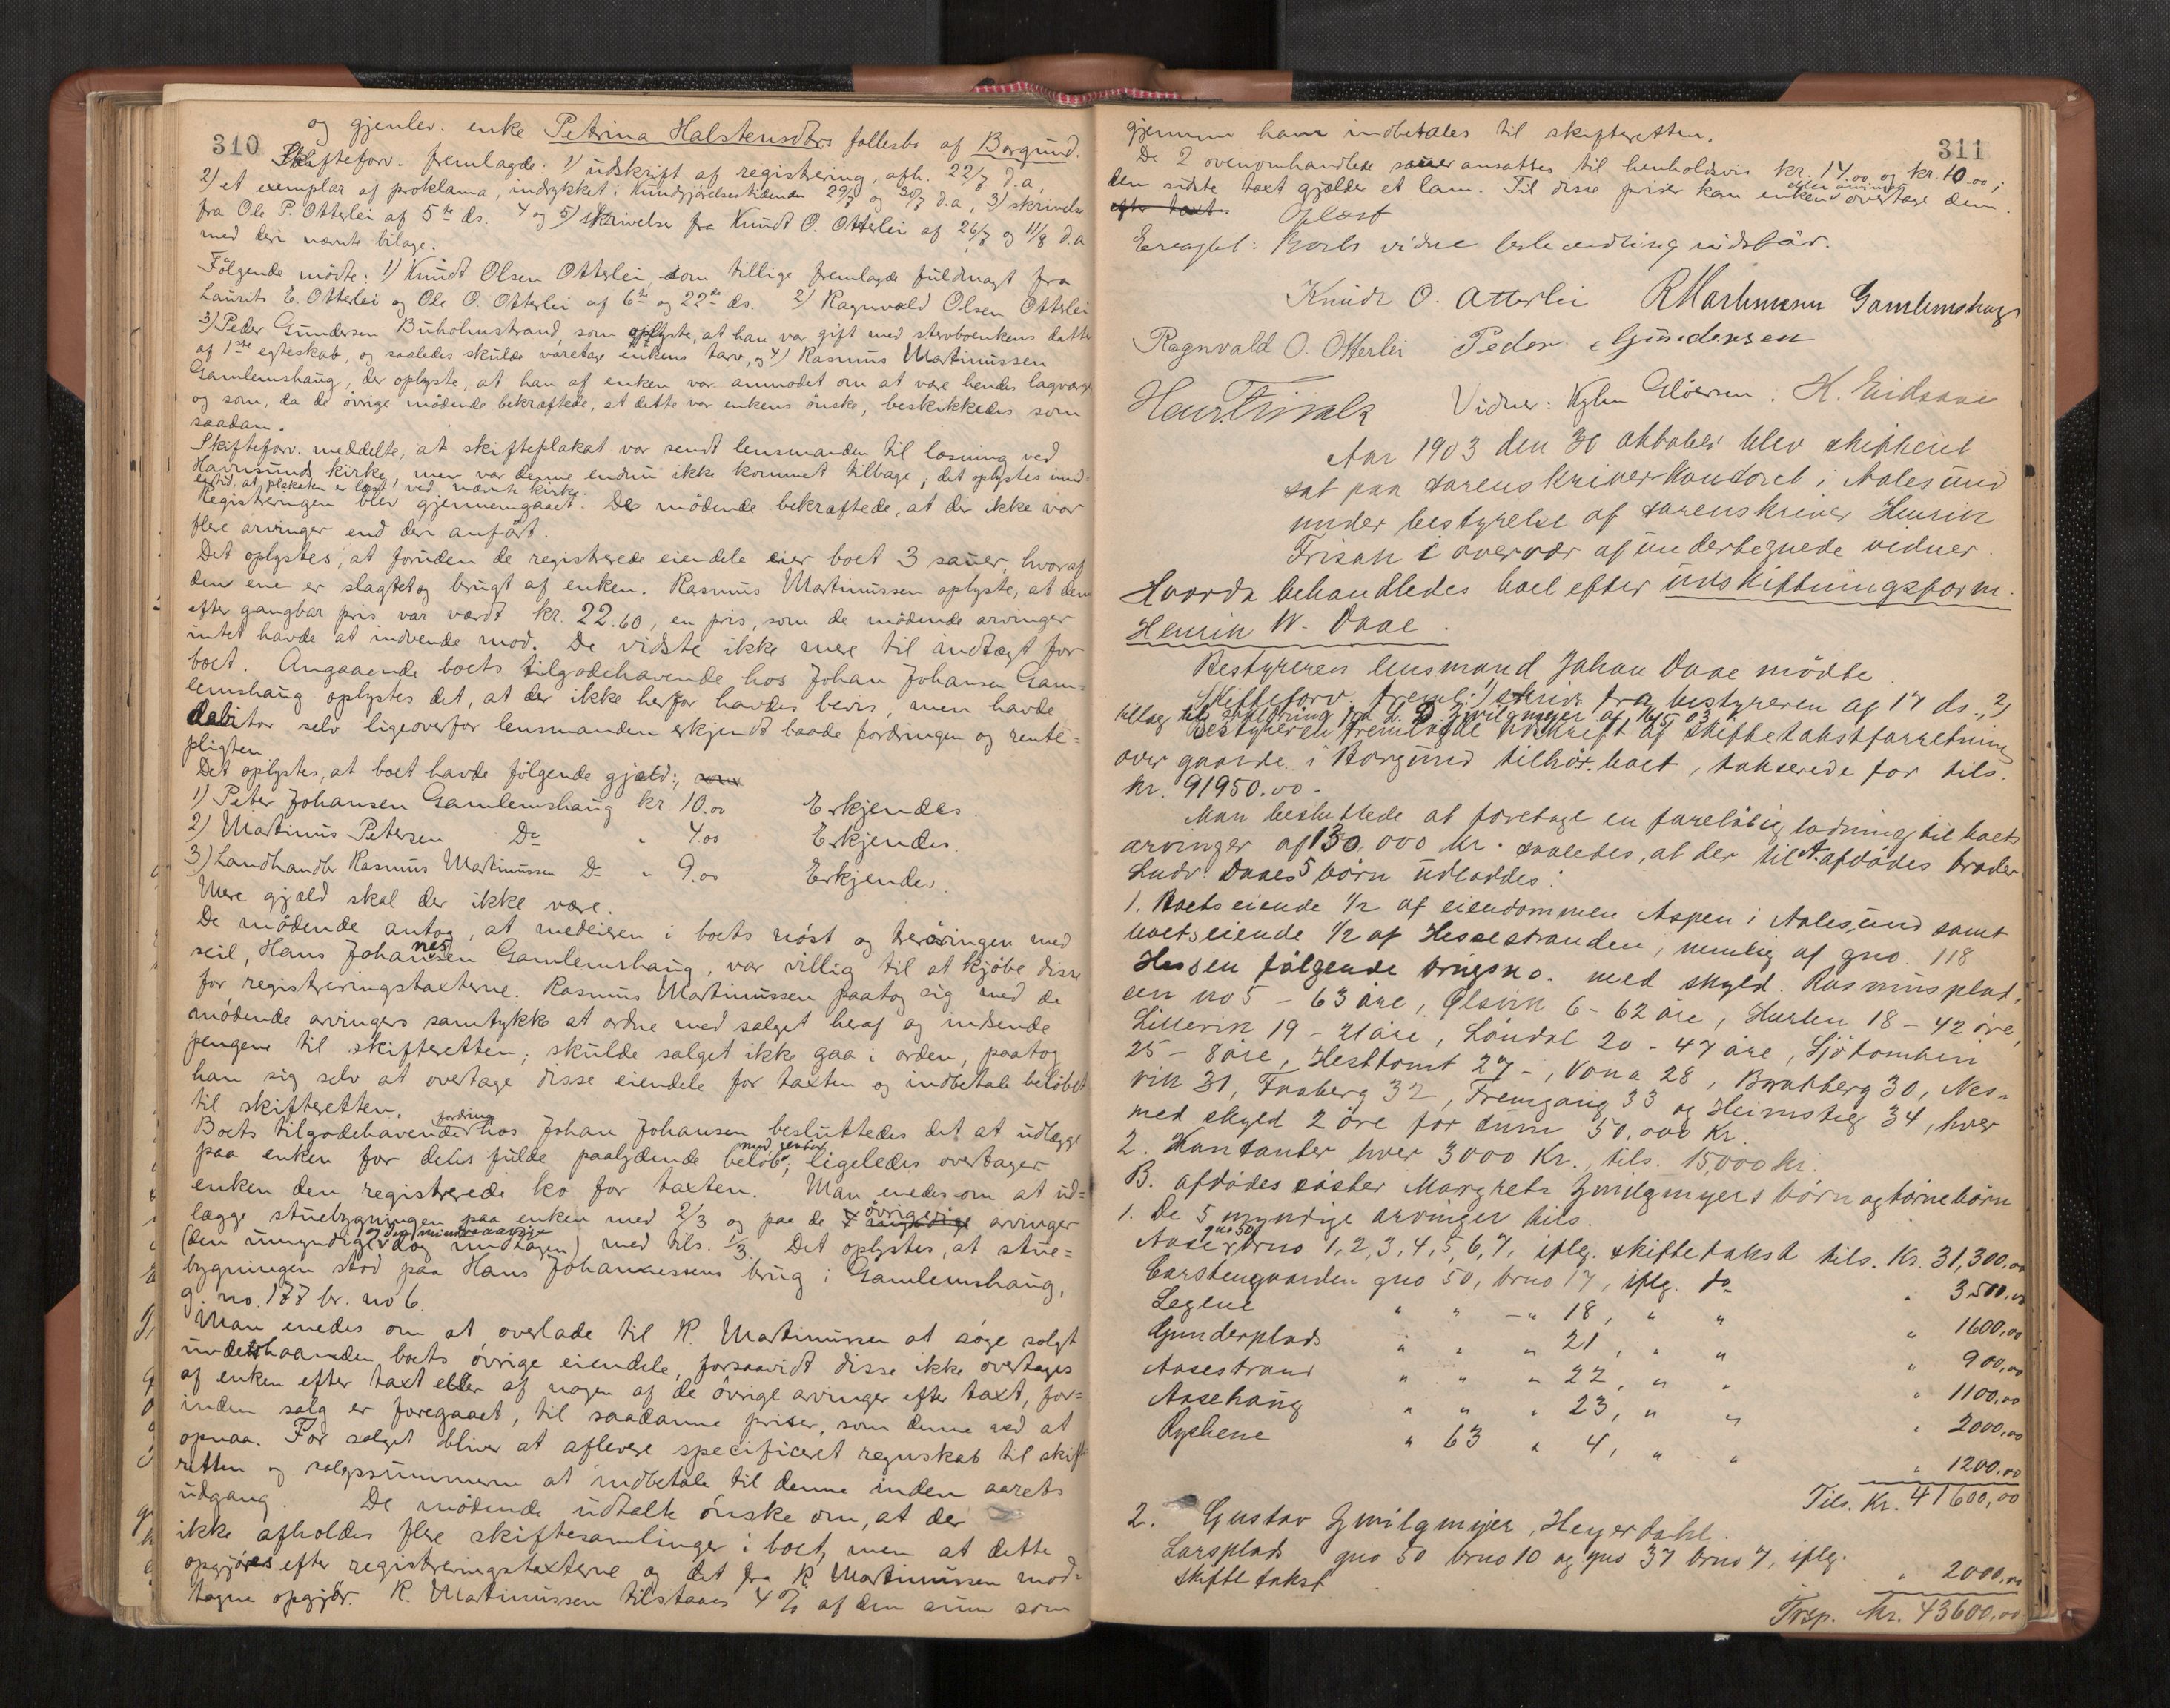 310
og gjenlev. enke Petrina Halstensdtrs fællesbo af Borgund.
Skifteforv. fremlagde: 1) udskrift af registrering, afh. 22/7 d.a,
2) et exemplar af proklama, indrykket i Kundgjørelsestidenden 29/7 og 30/7 d.a, 3) skrivelse
fra Ole P. Otterlei af 5te ds. 4 og 5) skrivelser fra Knudt O. Otterlei af 26/7 og 11/8 d.a
med deri nævnte bilage.
Følgende mødte: 1) Knudt Olsen Otterlei, som tillige fremlagde fuldmagt fra
Laurits E. Otterlei og Ole O. Otterlei af 6te og 22de ds. 2) Ragnvald Olsen Otterlei
3) Peder Gundersen Buholmstrand, som oplyste, at han var gift med stervboenkens datter
af 1ste egteskab, og saaledes skulde varetage enkens tarv, og 4) Rasmus Martinussen
Gamlemshaug, der oplyste, at han af enken var anmodet om at være hendes lagværge
og som, da de øvrige mødende bekræftede, at dette var enkens ønske, beskikkedes som
saadan.
Skifteforv. meddelte, at skifteplakat var sendt lensmanden til læsning ved
Havnsunds kirke, men var denne endnu ikke kommet tilbage; det oplystes imid-
lertid, at plakaten er læst ved nævnte kirke.
Registreringen blev gjennemgaaet. De mødende bekræftede, at der ikke var
flere arvinger end deri anført.
Det oplystes, at foruden de registrerede eiendele eier boet 3 sauer, hvoraf
den ene er slagtet og brugt af enken. Rasmus Martinussen oplyste, at den
efter gangbar pris var værdt kr. 22.60, en pris, som de mødende arvinger
intet havde at indvende mod. De vidste ikke mere til indtægt for
boet. Angaaende boets tilgodehavende hos Johan Johansen Gam-
lemshaug oplystes det, at der ikke herfor havdes bevis, men havde
debitor selv ligeoverfor lensmanden erkjendt baade fordringen og rente-
pligten
Det oplystes, at boet havde følgende gjæld:
1) Peter Johansen Gamlemshaug kr. 10.00 Erkjendes.
2) Martinus Petersen Do " 4.00 Erkjendes.
3) Landhandler Rasmus Martinussen Do " 9.00 Erkjendes.
Mere gjæld skal der ikke være.
De mødende antog, at medeieren i boets nøst og treøringen med
seil, Hans Johannessen Gamlemshaug, var villig til at kjøbe disse
for registreringstaxterne. Rasmus Martinussen paatog sig med de
mødende arvingers samtykke at ordne med salget heraf og indsende
pengene til skifteretten; skulde salget ikke gaa i orden, paatog
han sig selv at overtage disse eiendele for taxten og indbetale beløbet
til skifteretten.
Boets tilgodehavende fordring hos Johan Johansen besluttedes det at udlægge
paa enken for dets fulde paalydende beløb med renter; ligeledes overtager
enken den registrerede ko for taxten. Man enedes om at ud-
lægge stuebygningen paa enken med 2/3 og paa de øvrige arvinger
(den umyndige og den mindreaarige dog undtagen) med tils. 1/3. Det oplystes, at stue-
bygningen stod paa Hans Johannessens brug i Gamlemshaug,
g. no. 177 br. no 6.
Man enedes om at overlade til R. Martinussen at søge solgt
underhaanden boets øvrige eiendele, forsaavidt disse ikke overtages
af enken efter taxt eller af nogen af de øvrige arvinger efter taxt, for-
inden salg er foregaaet, til saadanne priser, som denne ved at
opnaa. For salget bliver at aflevere specificeret regnskab til skift
retten og salgssummerne at indbetale til denne inden aarets
udgang. De mødende udtalte ønske om, at der
ikke afholdes flere skiftesamlinger i boet, men at dette
opgjøres efter registreringstaxterne og det fra R Martinussen mod-
tagne opgjør. R. Martinussen tilstaaes 4 % af den sum som
311
gjennem ham indbetales til skifteretten.
De 2 ovenomhandlede sauer ansattes til henholdsvis kr. 14.00 og kr. 10.00;
den sidste taxt gjælder et lam. Til disse priser kan enken eller arvinger overtage dem
efter taxt. Oplæst
Eragtet: Boets videre behandling udstaar.
Knudt O. Otterlei RMartinussen Gamlemshaug
Ragnvald O. Otterlei Peder Gundersen
Henr. Frisak Vidner: H. Eidsaae
Aar 1903 den 30 oktober blev skifteret
sat paa sorenskriverkontoret i Aalesund
under bestyrelse af sorenskriver Henrik
Frisak i overvær af undertegnede vidner.
Hvorda behandledes boet efter udskiftningsform.
Henrik W. Daae.
Bestyreren lensmand Johan Daae mødte.
Skifteforv. freml. 1) skriv. fra bestyreren af 17 ds., 2)
tillæg til erklæring fra L. D. Zwilgmeyer af 16/5 03.
Bestyreren fremlagde udskrift af skiftetakstforretning
over gaarde i Borgund tilhør. boet, takserede for tils.
kr. 91950.00.
Man besluttede at foretage en foreløbig lodning til boets
arvinger af 130.000 kr. saaledes, at der til A. afdødes broder
Ludv. Daaes 5 børn udloddes:
1. Boets eiende 1/2 af eiendommen Aspen i Aalesund samt
boets eiende 1/2 af Hessestranden, nemlig af gno. 118
Hessen følgende brugsno. med skyld. Rasmusplad-
sen no 5 - 63 øre, Ølsvik 6 - 62 øre, Hurlen 18 - 42 øre,
Lillevik 19 - 21 øre, Løndal 20 - 47 øre, Sjøtomten
25 - 8 øre, Hesttomt 27 -, Vona 28, Bratberg 30, Nes-
vik 31, Fraaberg 32, Fremgang 33 og Heimsteg 34, hver
med skyld 2 øre for sum 50,000 Kr.
2. Kontanter hver 3000 Kr., tils. 15,000 kr.
B. afdødes søster Margrete Zwilgmeyers børn og børnebørn
1. De 5 myndige arvinger tils.
Aase gno 50 brno 1, 2, 3, 4, 5, 6, 7, iflg. skiftetakst tils. Kr. 31,300,00
Carstengaarden gno 50, brno 17, iflg. do " 3500,00
Legene " " " 18, " " " 1600,00
Gunderplads " " " 21, " " " 900,00
Aasestrand " " " 22, " " " 1100,00
Aasehaug " " " 23, " " " 2000,00
Rychene " 63 " 4, " " " 1200,00
Tils. Kr. 41600,00
2. Gustav Zwilgmyer, Heyerdahl.
Larsplads gno 50 brno 10 og gno 37 brno 7, iflg.
skiftetakst " 2000,00
Trsp. Kr. 43600,00